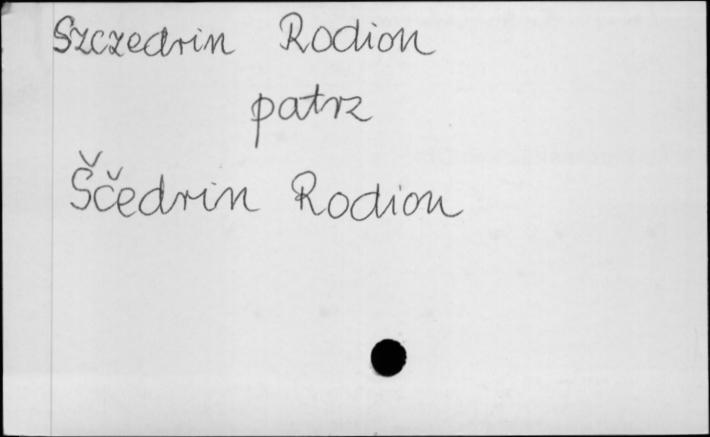 Szczedrin Rodion
patrz
Ščedrin Rodion